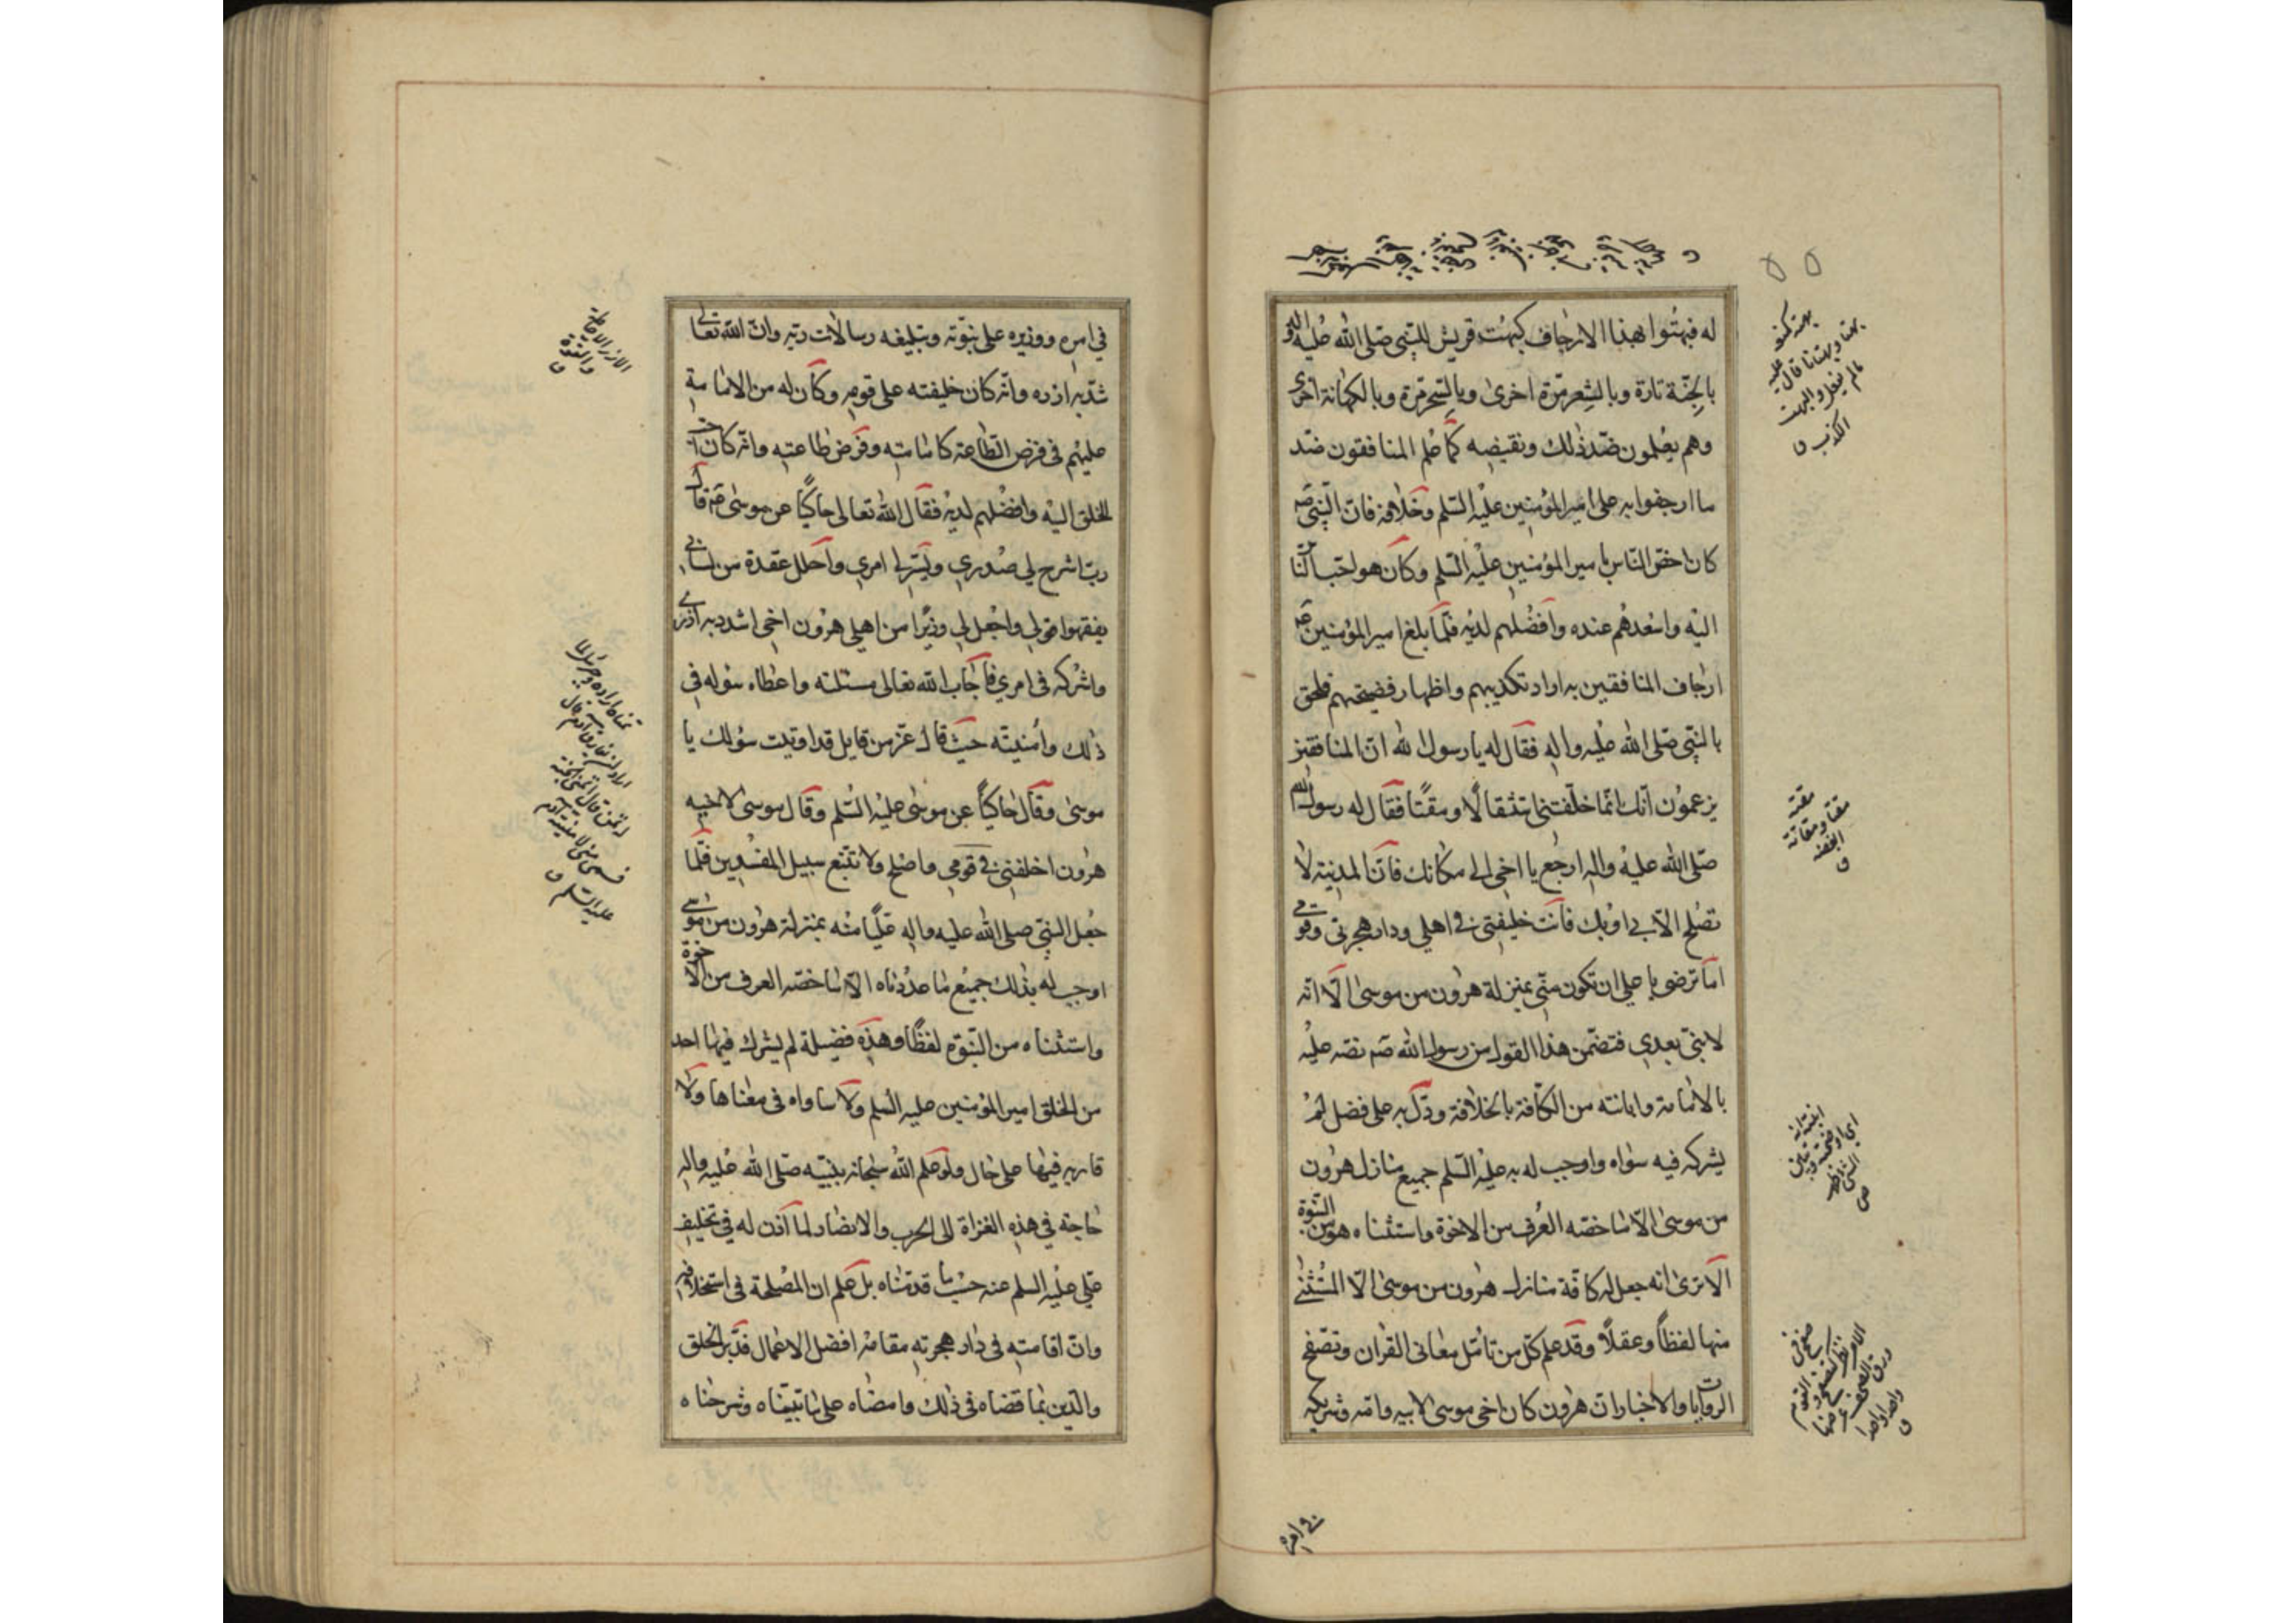 له فبهتوا بهذا الارجاف كبهت قريش للنبى صلى الله عليه واله
بالجنة تارة وبالشعر مرة اخرى وبالسحر مرة وبالكهانة اخرى
وهم يعلمون ضد ذلك ونقيضه كما علم المنافقون ضد
ما ارجفوا به على امير المؤمنين عليه السلم وخلافه فان النبى صم
كان اخص الناس بامير المؤمنين عليه السلم وكان هو احب الناس
اليه واسعدهم عنده وافضلهم لديه فلما بلغ امير المؤمنين عم
ارجاف المنافقين به اراد تكذيبهم واظهار فضيحتهم فلحق
بالنبى صلى الله عليه واله فقال له يا رسول الله ان المنافقين
يزعمون انك انما خلفتنى استثقالا ومقتا فقال له رسول الله
صلى الله عليه واله ارجع يا اخى الى مكانك فان المدينة لا
تصلح الا بي او بك فانت خليفتى في اهلى ودار هجرتى وقومى
اما ترضى يا على ان تكون منى بمنزلة هرون من موسى الا انه
لا نبى بعدى فتضمن هذا القول من رسول الله صم نصه عليه
بالامامة وابانته من الكافة بالخلافة ودل به على فضل لم
يشركه فيه سواه واوجب له به عليه السلم جميع منازل هرون
من موسى الا ما خصه العرف من الاخوة واستثناه هو من النبوة
الا ترى انه جعل له كافة منازل هرون من موسى الا المستثنى
منها لفظا وعقلا وقد علم كل من تامل معانى القران وتصفح
الروايات والاخبار ان هرون كان اخى موسى لابيه وامه وشريكه
في امره
بهته كمنعه
بهتا وبهتانا قال عليه
ما لم يفعل والبهت
الكذب ق
مقته
مقتا ومقاتة
ابغضه
ق
في امره ووزيره على نبوته وتبليغه رسالات ربه وان الله تعالى
شد به ازره وانه كان خليفته على قومه وكان له من الامامة
عليهم فى فرض الطاعة كامامته وفرض طاعته وانه كان احب
الخلق اليه وافضلهم لديه فقال الله تعالى حاكيا عن موسى عم قال
رب اشرح لي صدري ويسر لي امري واحلل عقدة من لساني
يفقهوا قولي واجعل لي وزيرا من اهلي هرون اخى اشدد به ازرى
واشركه فى امري فاجاب الله تعالى مسئلته واعطاه سؤله فى
ذلك وامنيته حيث قال عز من قايل قد اوتيت سؤلك يا
موسى وقال حاكيا عن موسى عليه السلم وقال موسى لاخيه
هرون اخلفنى في قومي واصلح ولا تتبع سبيل المفسدين فلما
جعل النبى صلى الله عليه واله عليا منه بمنزلة هرون من موسى
اوجب له بذلك جميع ما عددناه الا ما خصه العرف من الاخوة
واستثناه من النبوة لفظا وهذه فضيلة لم يشرك فيها احد
من الخلق امير المؤمنين عليه السلم ولا ساواه فى معناها ولا
قاربه فيها على حال ولو علم الله سبحانه بنبيه صلى الله عليه واله
حاجة في هذه الغزاة الى الحرب والانصار لما اذن له في تخليف
على عليه السلم عنه حسب ما قدمناه بل علم ان المصلحة فى استخلافه
وان اقامته فى دار هجرته مقامه افضل الاعمال فدبر الخلق
والدين بما قضاه فى ذلك وامضاه على ما بيناه وشرحناه